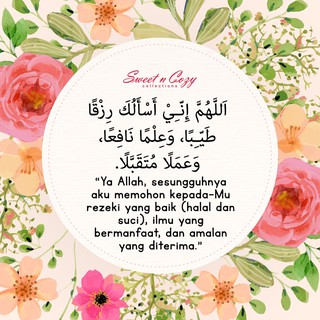 Sweet n Cozy
collections
اَللَّهُمَّ إِنِّيْ أَسْأَلُكَ رِزْقًا
طَيِّبًا، وَعِلْمًا نَافِعًا،
وَعَمَلًا مُتَقَبَّلًا.
"Ya Allah, sesungguhnya
aku memohon kepada-Mu
rezeki yang baik (halal dan
suci), ilmu yang
bermanfaat, dan amalan
yang diterima."